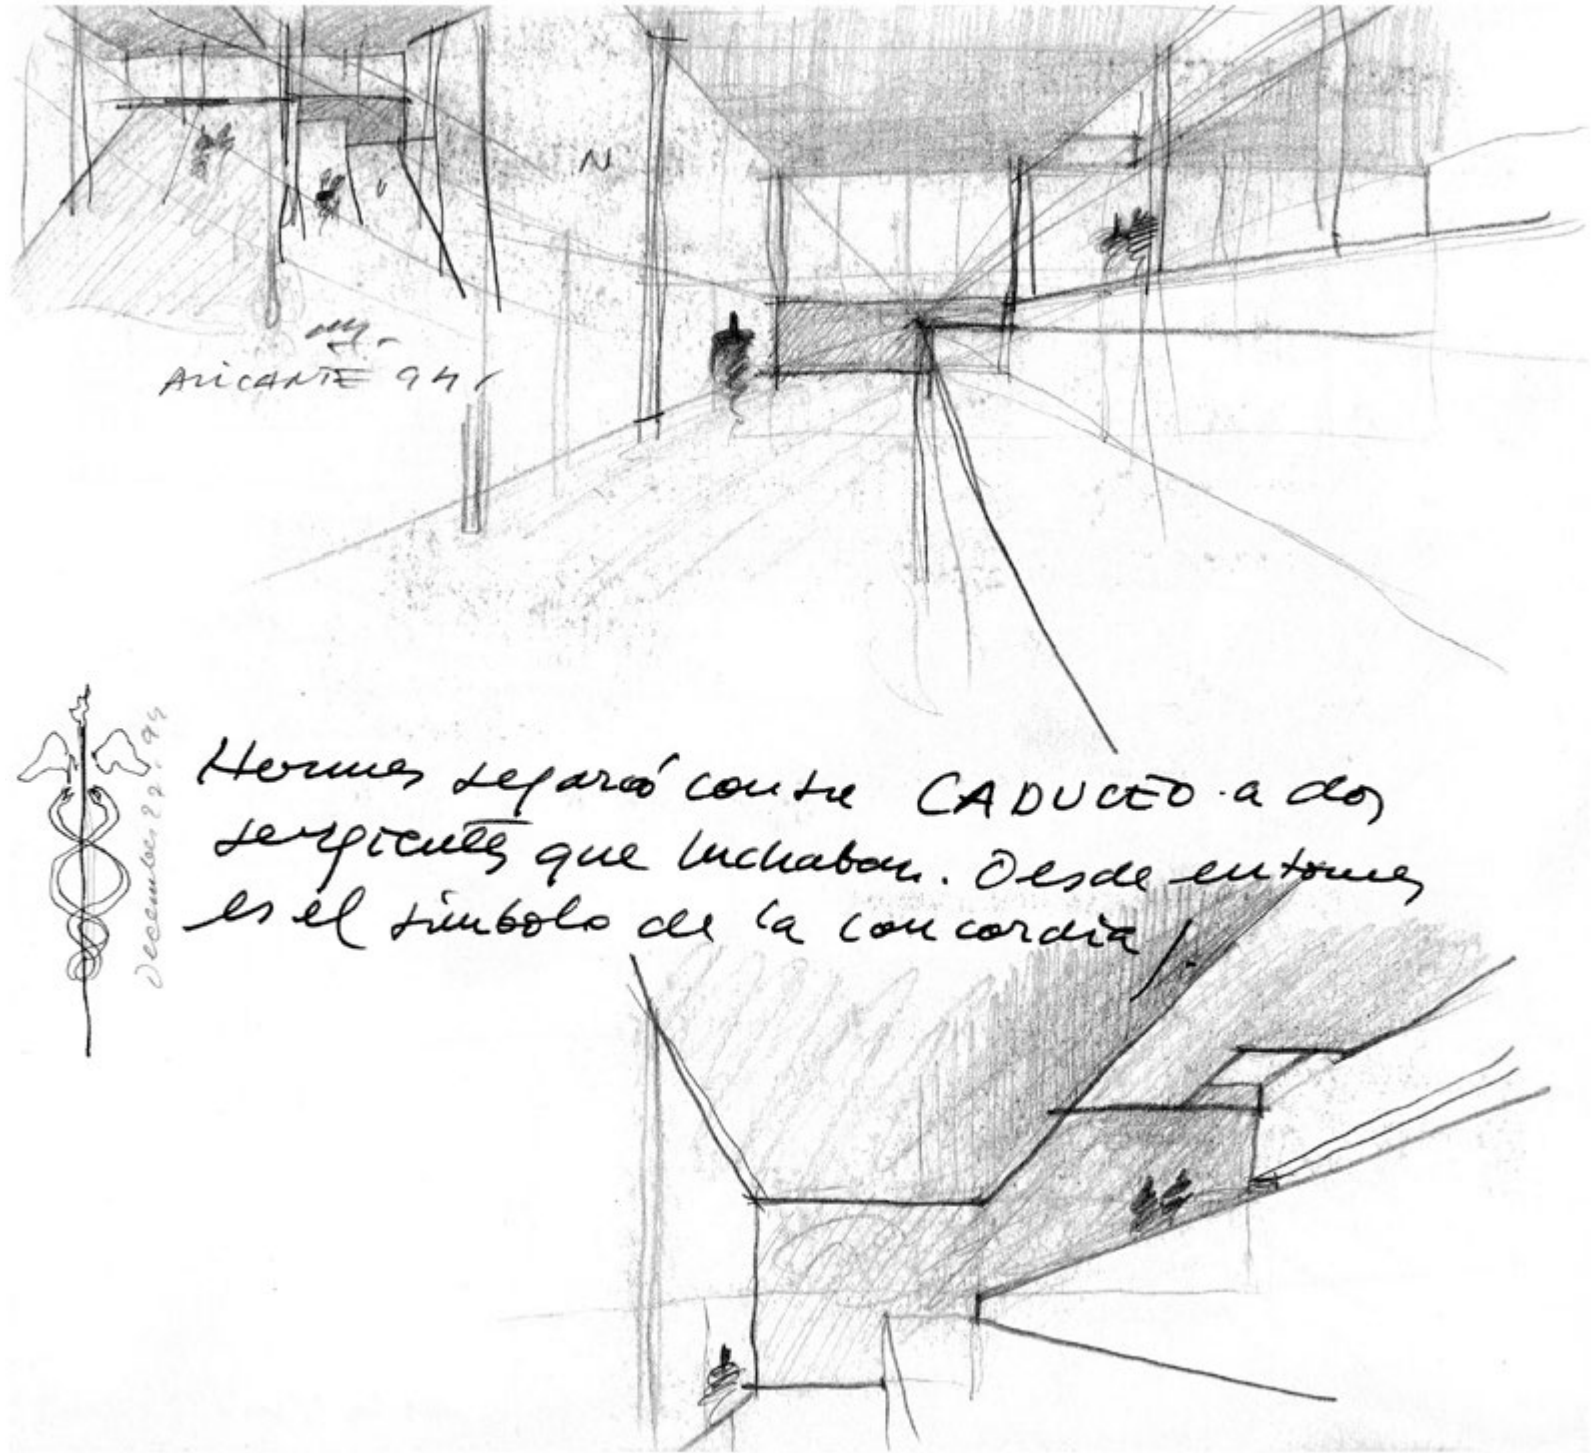 N
ALICANTE 94
December 22. 94
Hermes separó con su CADUCEO a dos
serpientes que luchaban. Desde entonces
es el símbolo de la concordia!